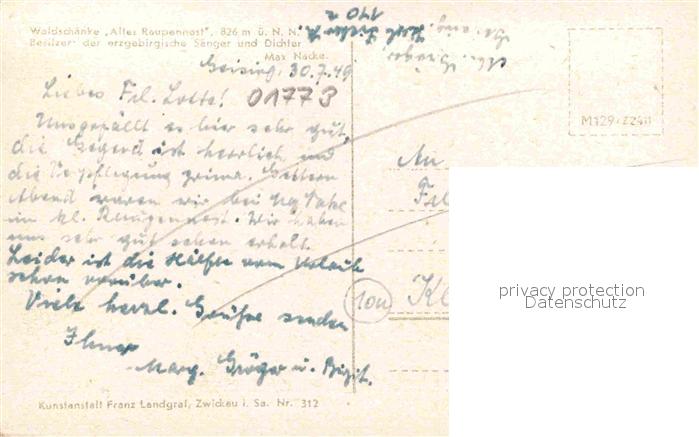 Waldschänke „Altes Raupennest", 826 m ü. N. N.
Besitzer: der erzgebirgische Sänger und Dichter
Max Nacke.
Geising, 30.7.49
Liebes Frl. Lotte!
01773
Uns gefällt es hier sehr gut,
die Gegend ist herrlich und
die Verpflegung prima. Gestern
Abend waren wir bei
im kl. Raupennest. Wir haben
uns sehr gut schon erholt.
Leider ist die Hälfte vom Urlaub
schon vorüber.
Viele herzl. Grüße senden
Ihnen
Marg. Gröger u. Birgit.
Kunstanstalt Franz Landgraf, Zwickau i. Sa. Nr. 312
M129/Z2411
An
Frl
10a
Kl
privacy protection
Datenschutz